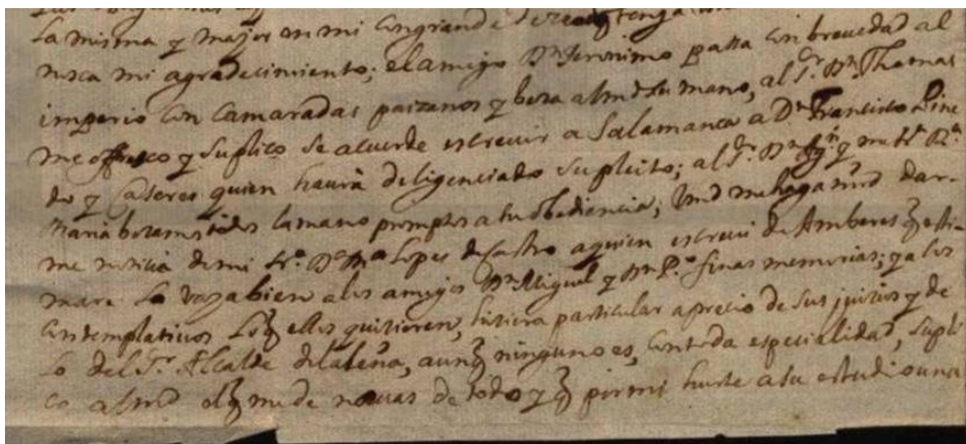 la misma y major en mi con grande deseo q tenga
nosca mi agradecimiento; el amigo Dn Jeronimo passa con brevedad al
imperio con camaradas paizanos y besa a Vmd su mano, al Sr. Dn Thomas
me offresco y suplico se acuerde escrevir a Salamanca a Dn Francisco Pine
do y Caseres quien havra deligenciado su pleito; al Sr. Dn y mi Sra Da
Maria besamos todos la mano promptos a su obediencia; Vmd me haga mrd dar-
me noticia de mi Sra. Da Ma Lopes de Castro a quien escrevi de Amberes q esti-
mare la vaya bien a los amigos Dn Miguel y Dn Po finas memorias; y a los
contemplativos lo q ellos quisieren, hisiera particular aprecio de sus juisios y de
lo del Sr. Alcalde aunq ninguno es, con toda especialidad, supli
co a Vmd el q me de nuevas de todo y q por mi hurte a su estudio una